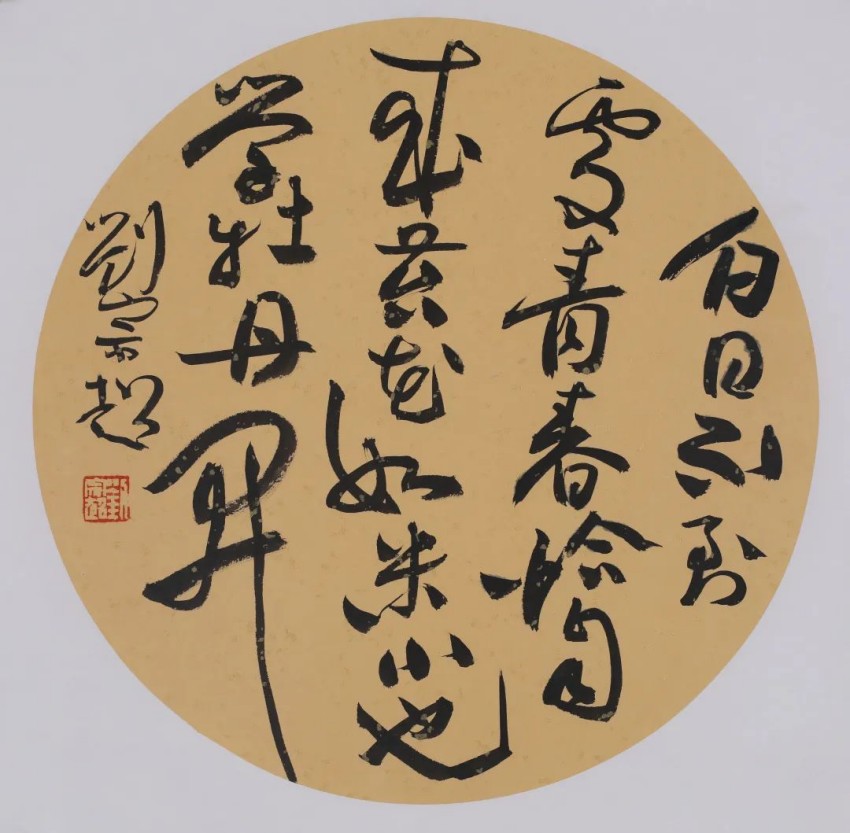 白日不到
處青春恰自
來苔花如米小也
学牡丹開
劉宗超